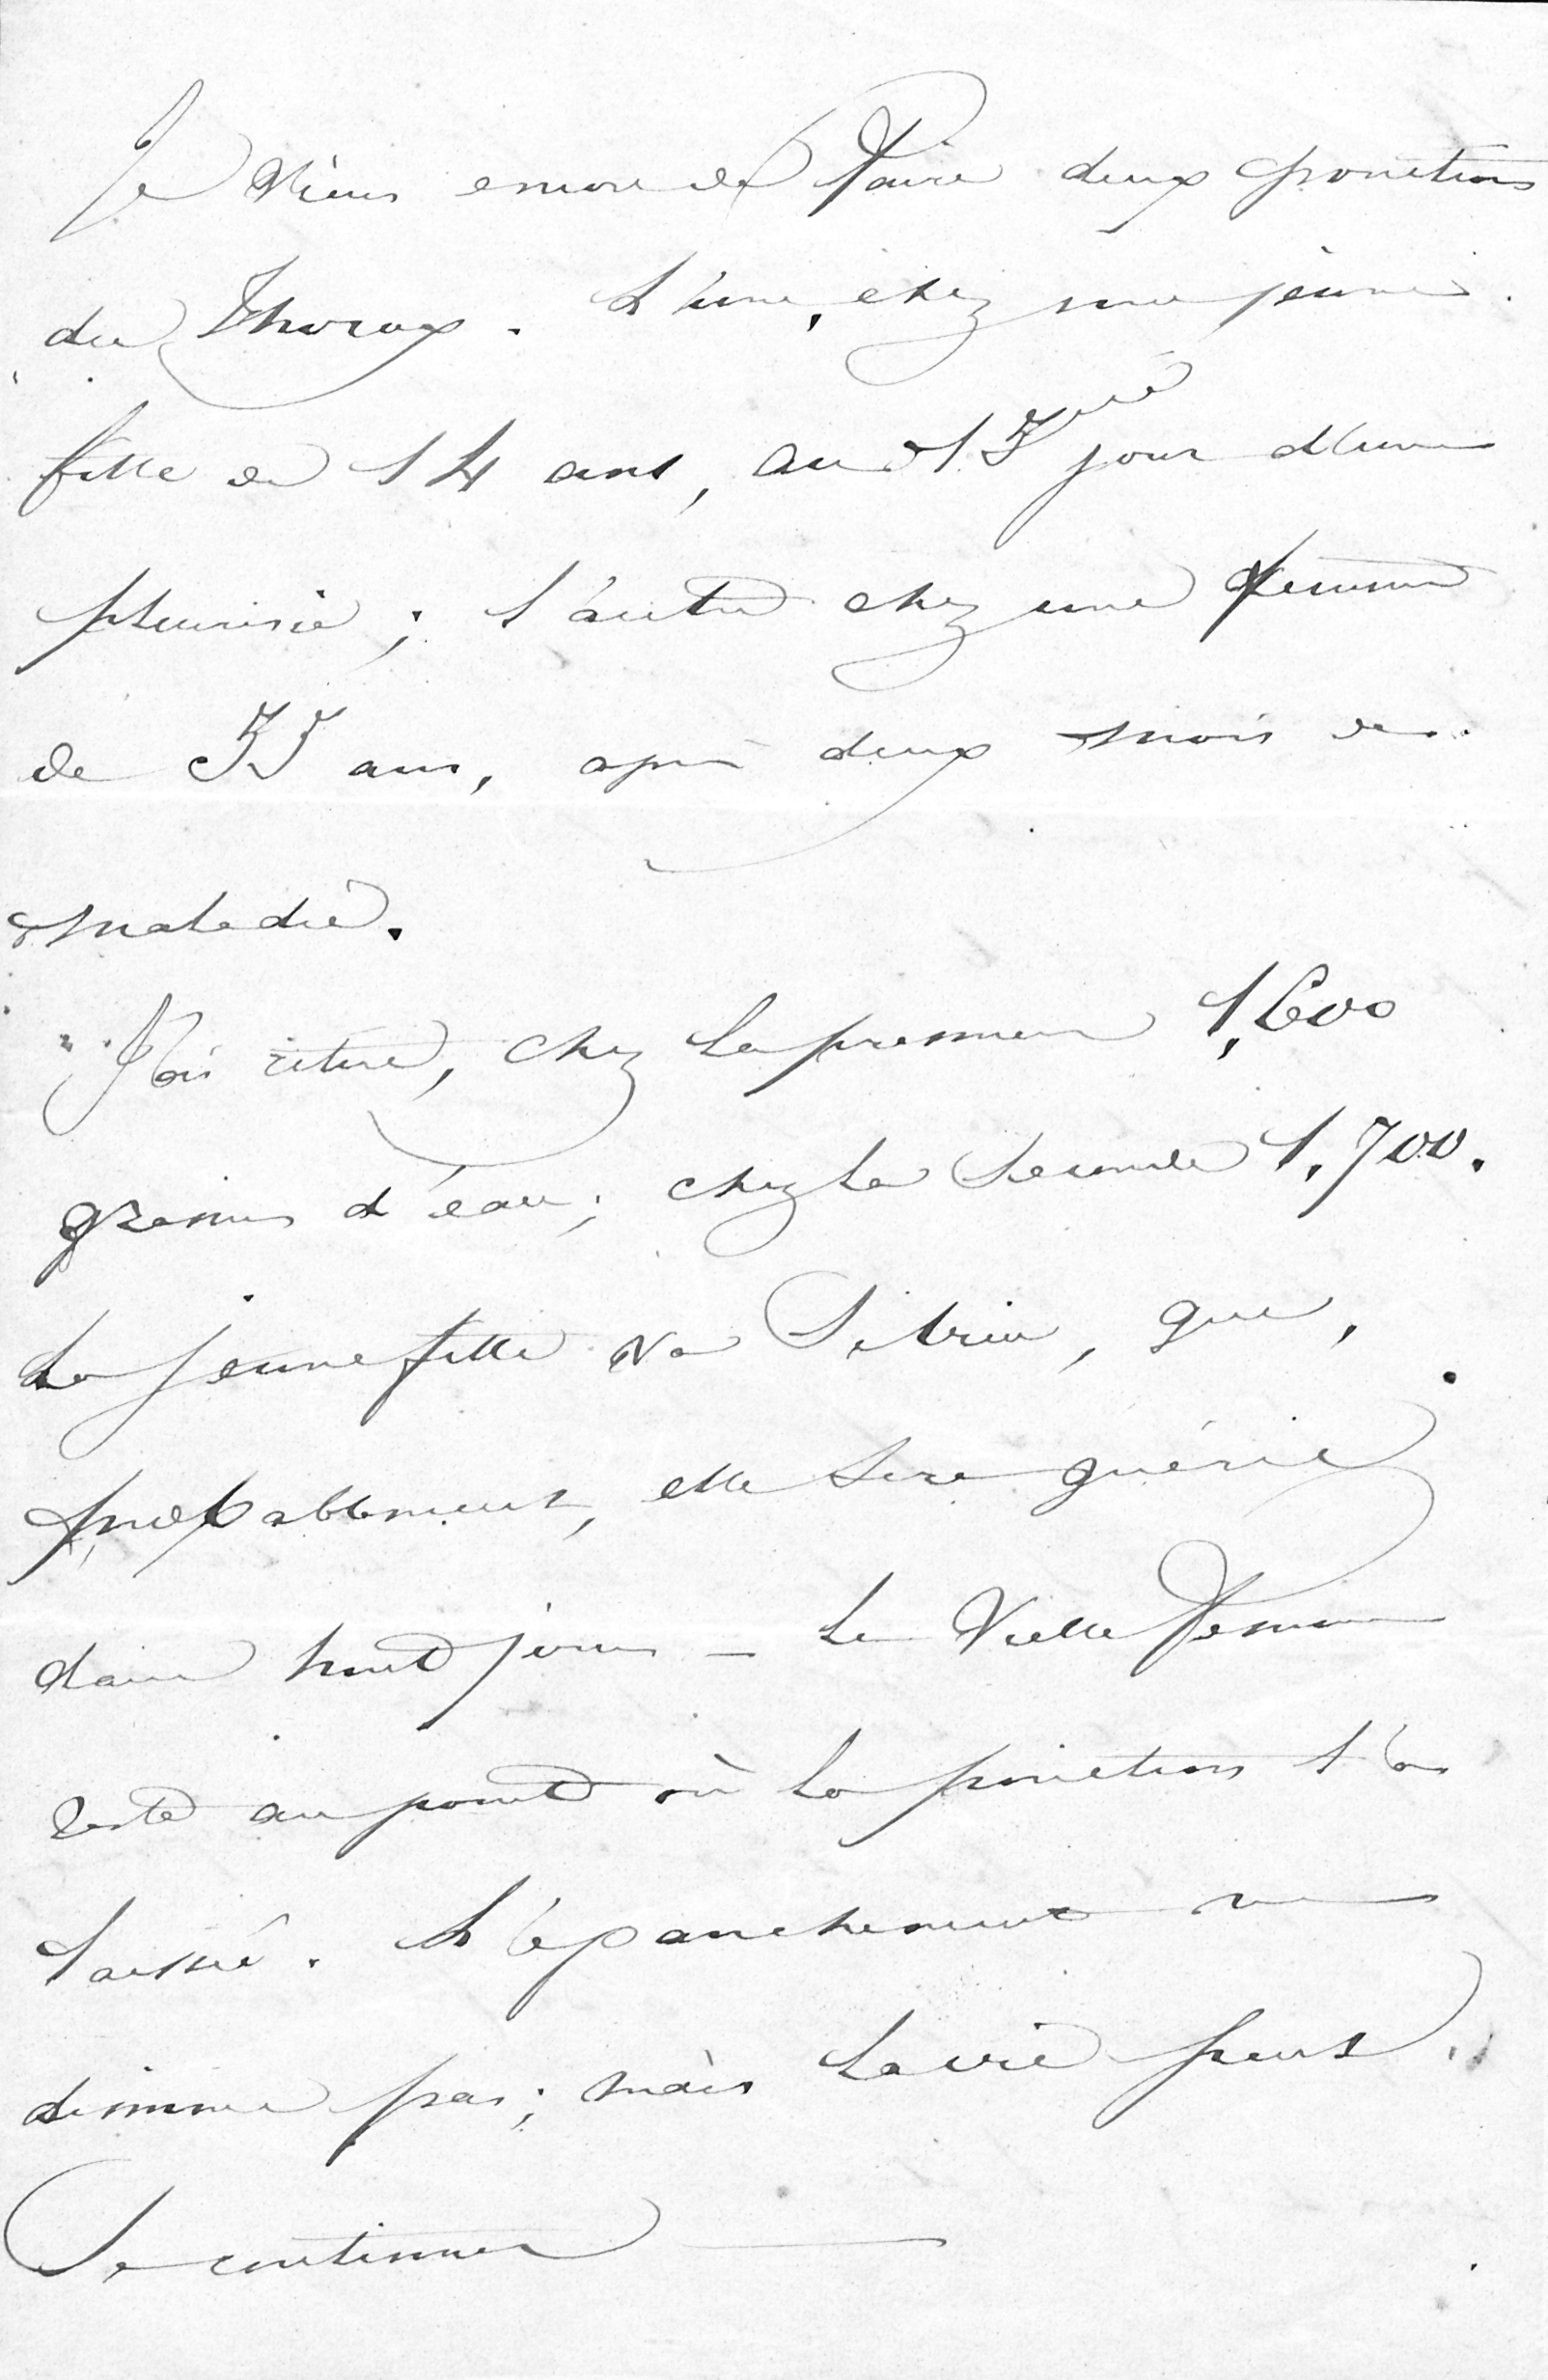 Je viens encore de faire deux ponctions
du Thorax. L'une, chez une jeune
fille de 14 ans, au 13eme jour d'une
pleurisie ; l'autre chez une femme
de 55 ans, après deux mois de
maladie.
J'ai retiré, chez la premiere 1,600
grammes d'eau ; chez la seconde 1,700.
La jeune fille va si bien, que,
probablement, elle sera guérie
dans huit jours — La vielle femme
reste au point où la ponction l'a
laissé. L'épanchement ne
diminue pas ; mais la vie peut
se continuer —